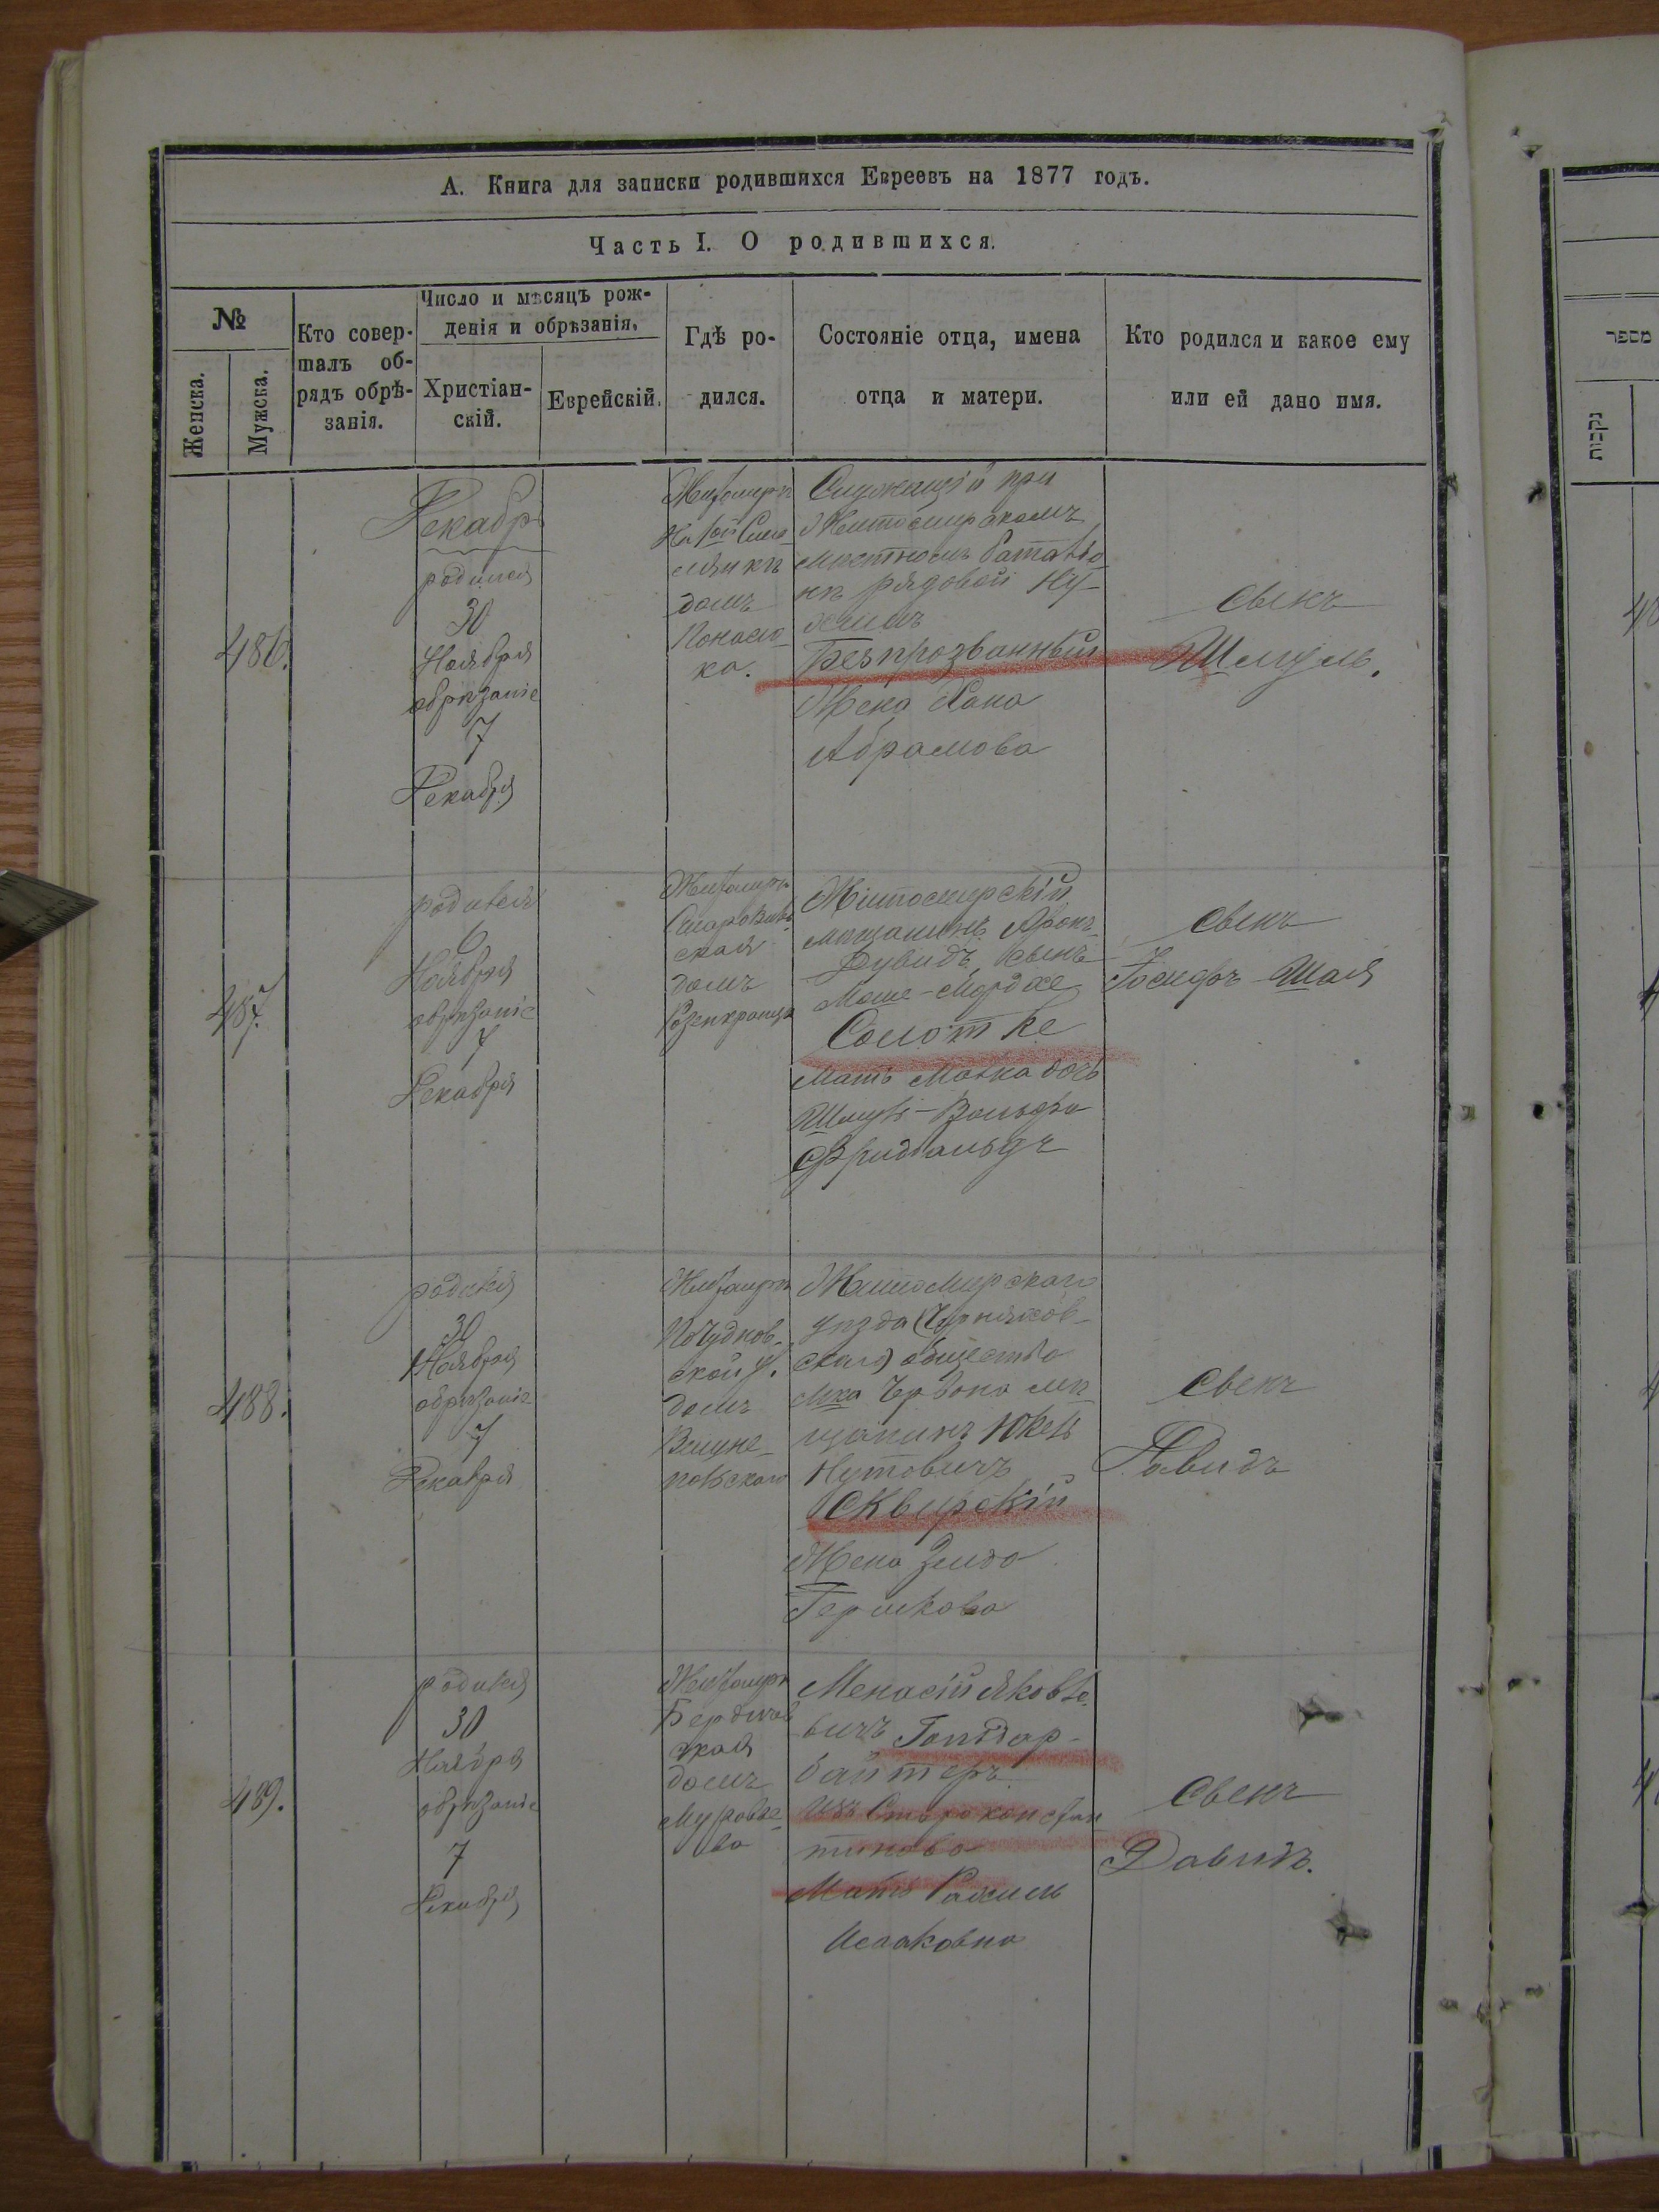 А. Книга для записки родившихся Евреевъ на 1877 годъ.
Часть I. О родившихся.
№
Женска.
Мужска.
Кто совер-
шалъ об-
рядъ обрѣ-
занія.
Число и мѣсяцъ рож-
денія и обрѣзанія.
Христіан-
скій.
Еврейскій.
Гдѣ ро-
дился.
Состояніе отца, имена
отца и матери.
Кто родился и какое ему
или ей дано имя.
486.
Декабрь
родился
30
Ноября
обрѣзаніе
7
Декабря
Житомиръ
домъ
Служащій при
Житомирскомъ
мѣстномъ баталіо
нѣ рядовой Ну-
химъ
Безпрозванный
Жена Хана
Абрамова
сынъ
Шмуль.
487.
родился
6
Ноября
обрѣзаніе
7
Декабря
Житомиръ
ская
домъ
Розенкранца
Житомирскій
мѣщанинъ Аронъ-
Дувидъ сынъ
Моше-Мордхе
Солотке
Мать Малка дочь
Вольфа
сынъ
Іосифъ-Шая
488.
родился
30
Ноября
обрѣзаніе
7
Декабря
Житомиръ
По Чуднов-
ской у.
домъ
Житомирскаго
уѣзда Черняхов-
скаго общества
мѣ
щанинъ
Нутовичъ
Сквирскій
Жена Зелда
Гершкова
сынъ
Давидъ
489.
родился
30
Ноября
обрѣзаніе
7
Декабря
Житомиръ
Бердичев
ская
домъ
Менасій Яковле
вичъ Гольдар-
байтеръ
изъ Староконстан
тинова
Мать Рахиль
Исааковна
сынъ
Давидъ.
מספר
נקבות